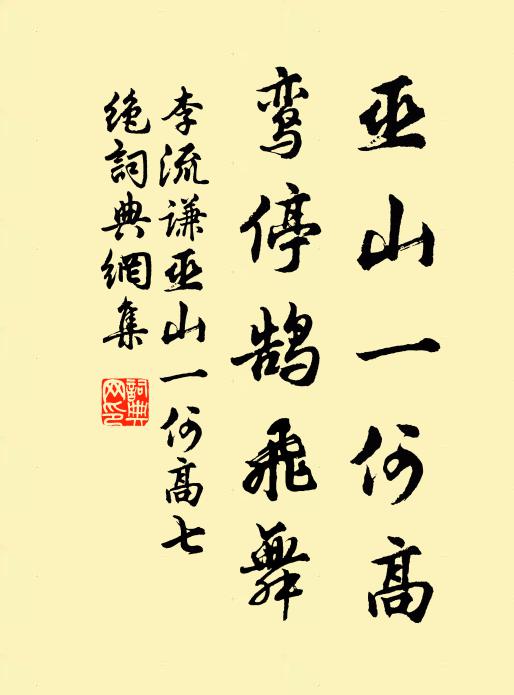 巫山一何高
鸾停鹄飛舞
李流谦巫山一何高七
絶詞典網集
詞典
网印